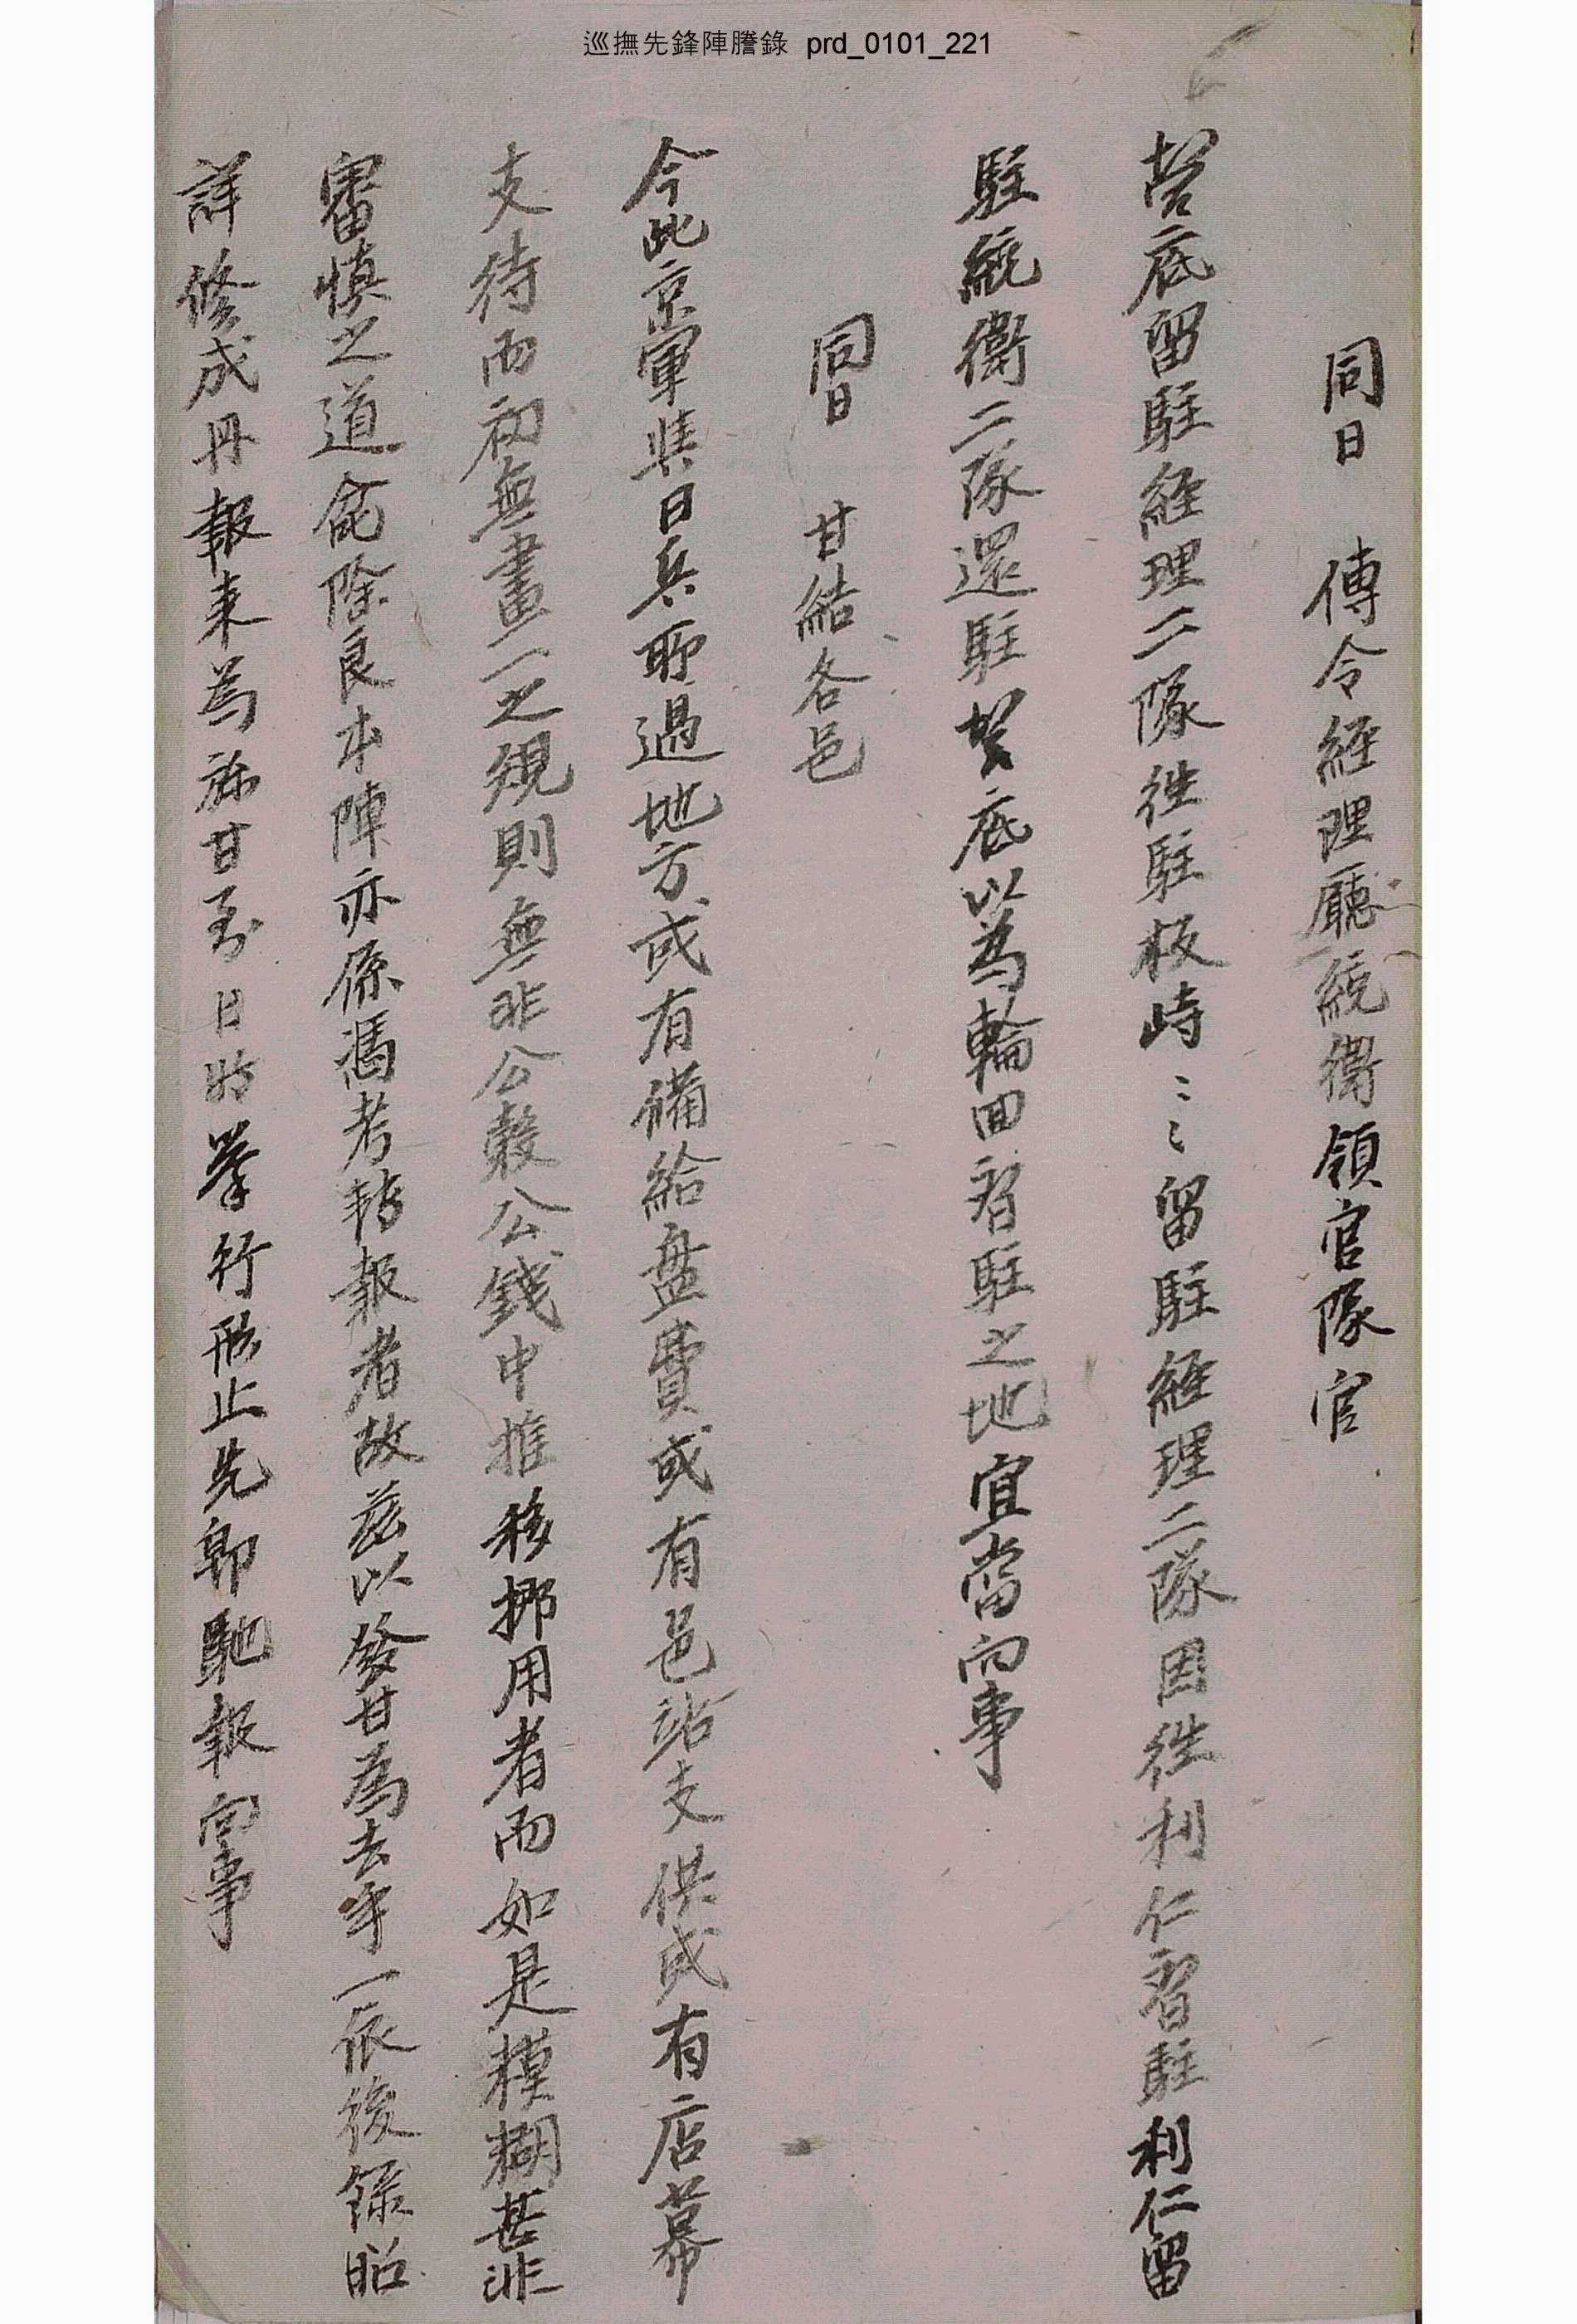 巡撫先鋒陣謄錄 prd_0101_221
同日 傳令經理廳統衛領官隊官
営底留駐經理二隊徃駐板峙〻〻留駐經理二隊因徃利仁習駐利仁留
駐統衛二隊還駐営底以為輪回習駐之地宜當向事
同日 甘結各邑
今此京軍與日兵所過地方或有備給盘費或有邑站支供或有店幕
支待而初無畫一之規則無非公穀公錢中推移挪用者而如是糢糊甚非
審慎之道侖除良本陣亦係馮考轉報者故玆以發甘為去乎一依後錄昭
詳修成冊報来為㫆甘到日時擧行形止先即馳報向事